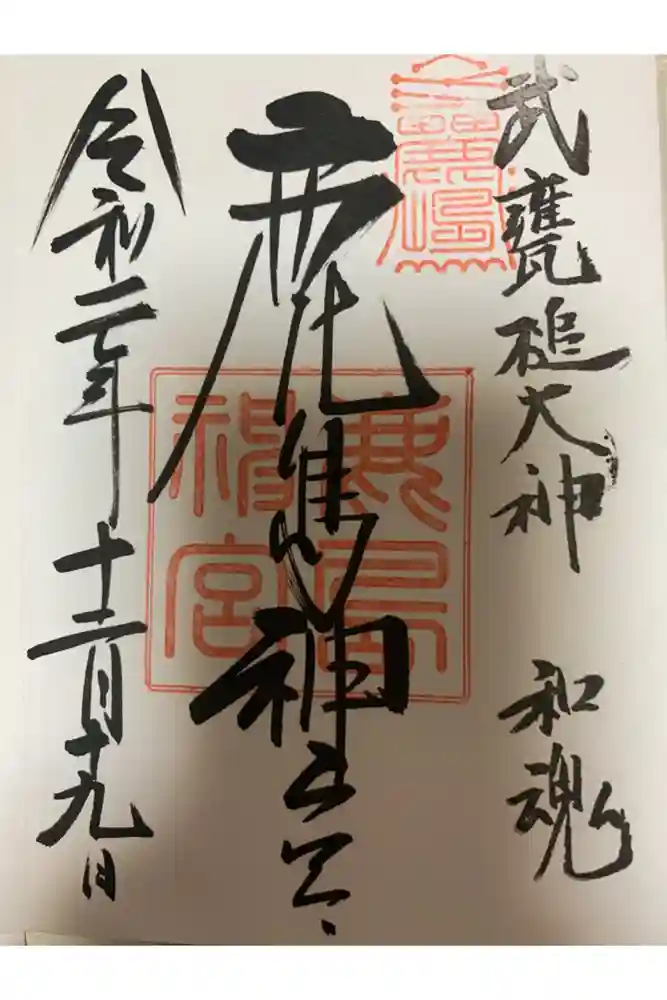 武甕槌大神 和魂
鹿島神宮
鹿島
神宮
令和二年十二月十九日